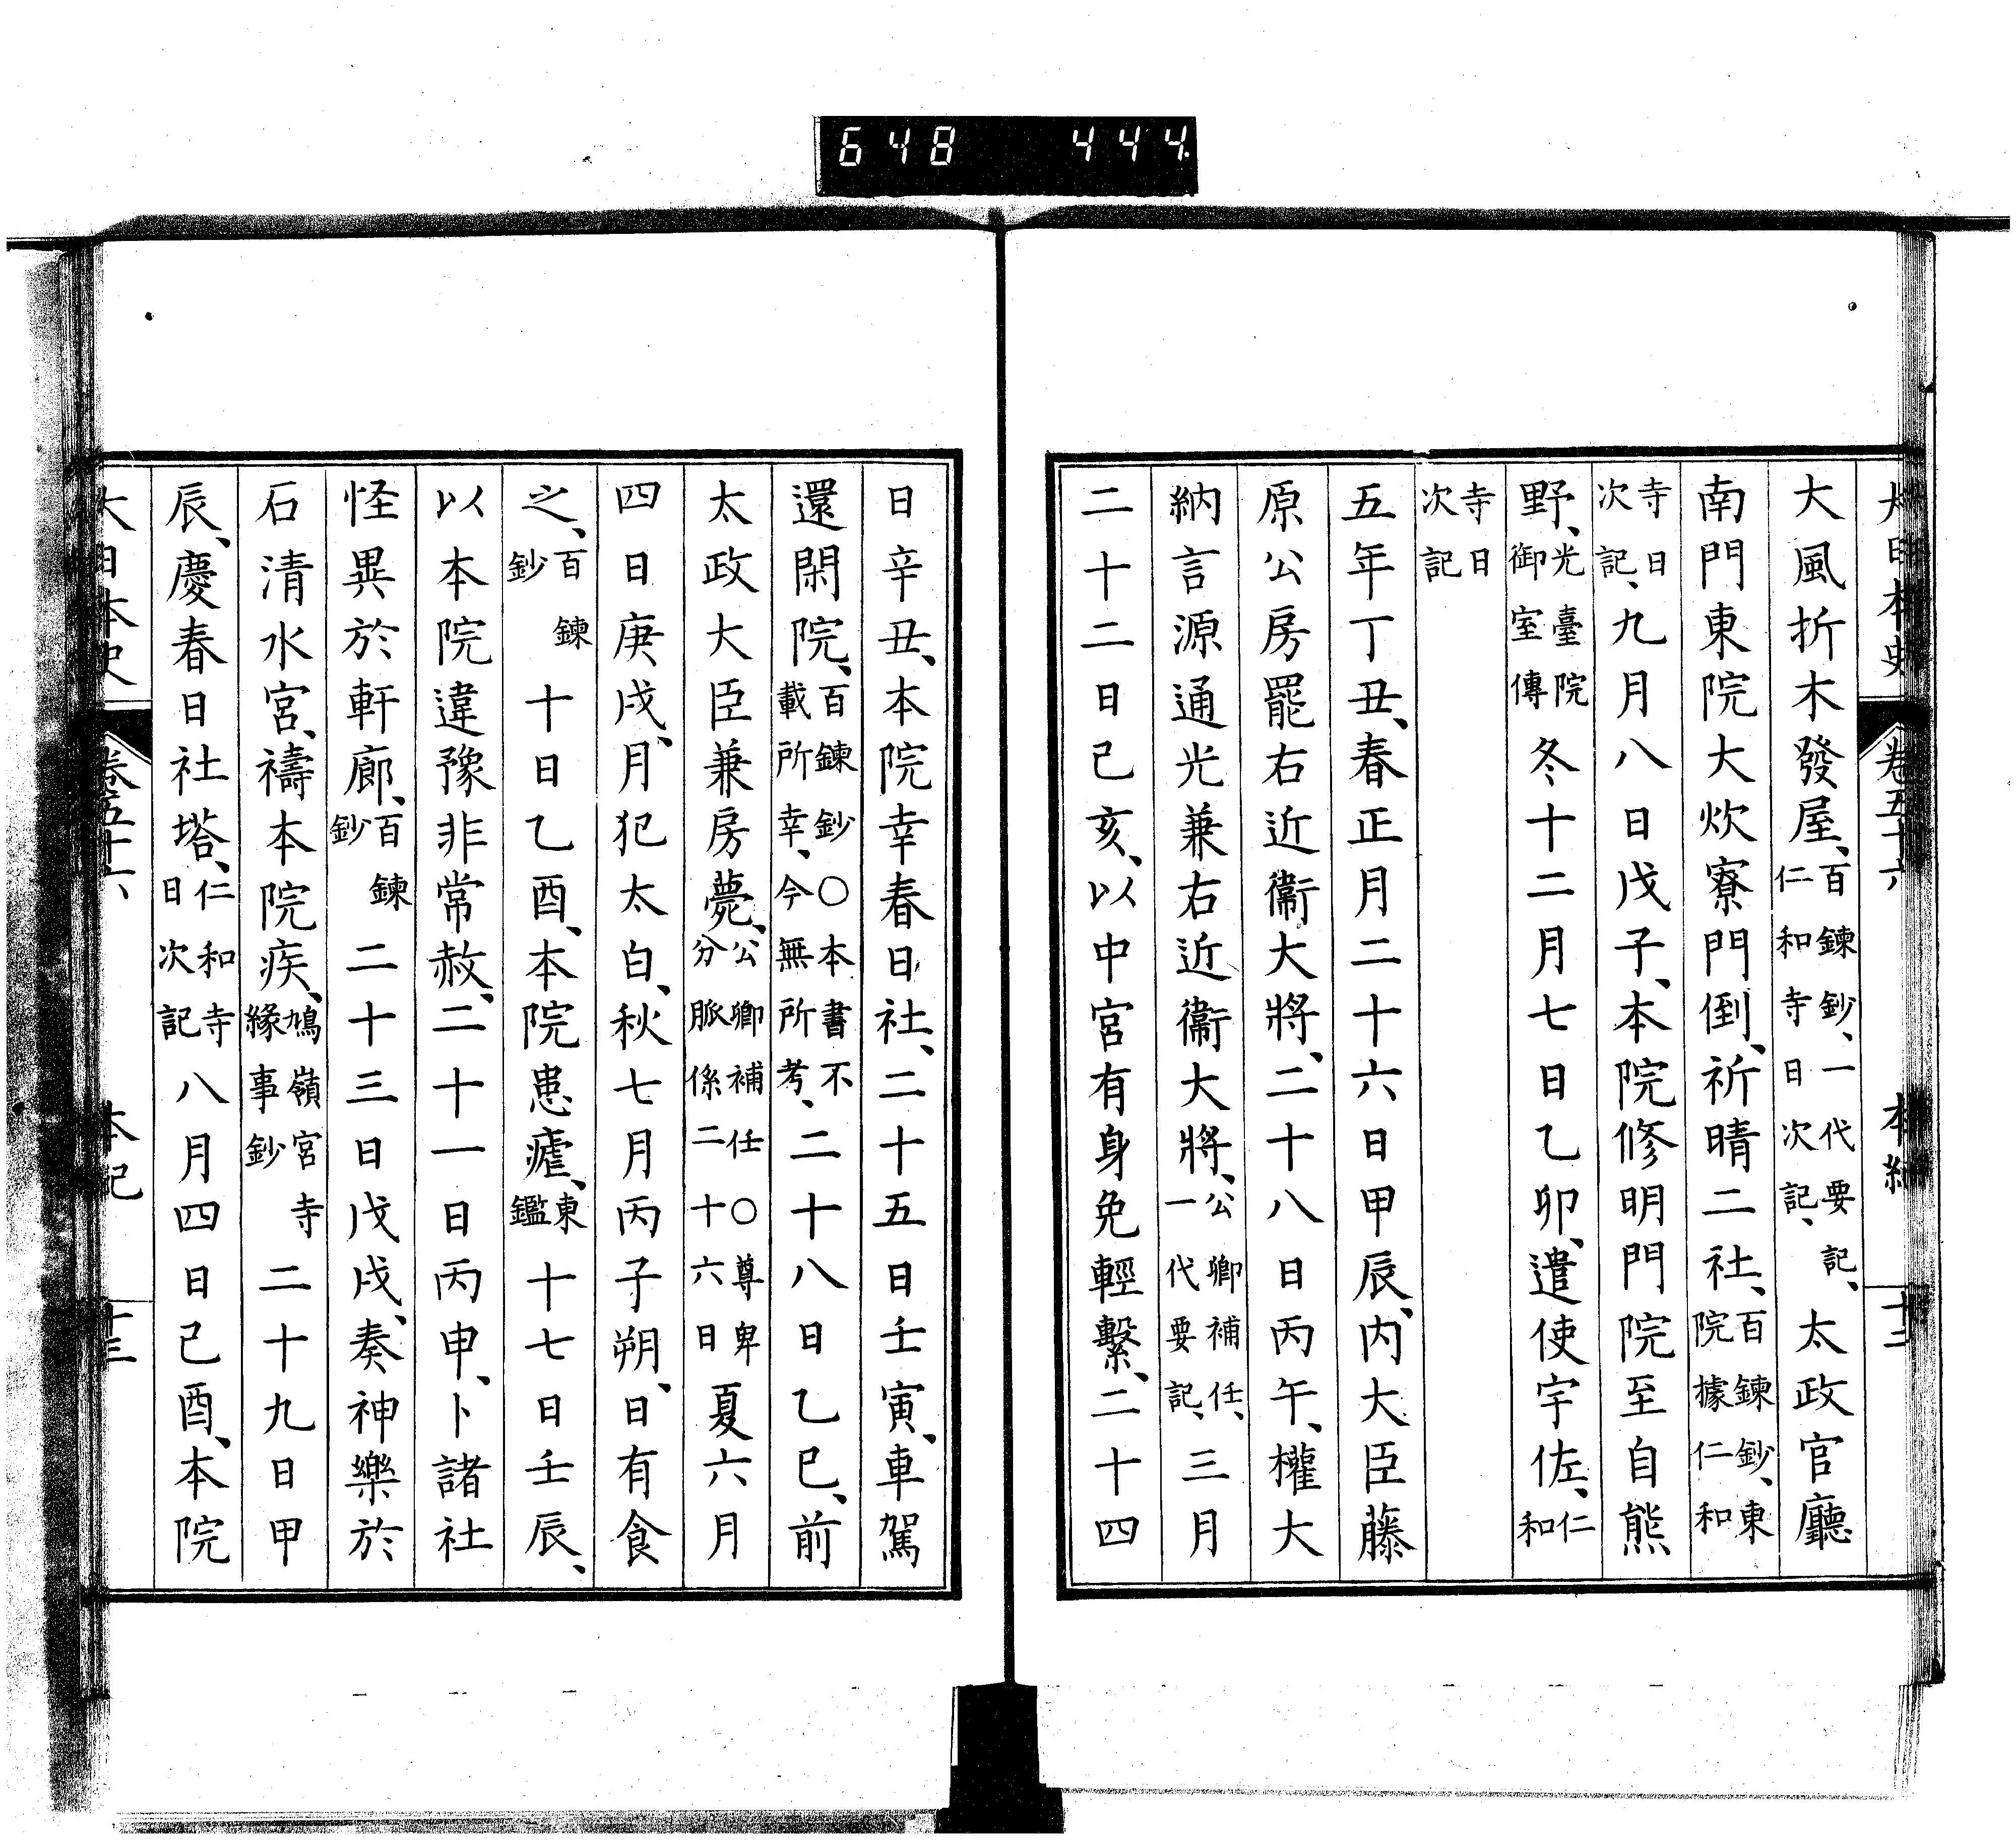 648 444
大日本史 卷五十六 本紀 十二
大風折木發屋、百鍊鈔、一代要記、仁和寺日次記、太政官廳
南門東院大炊寮門倒、祈晴二社、百鍊鈔、東院據仁和
寺日次記、九月八日戊子、本院修明門院至自熊
野、光臺院御室傳冬十二月七日乙卯、遣使宇佐、仁和
寺日次記
五年丁丑、春正月二十六日甲辰、內大臣藤
原公房罷右近衞大將、二十八日丙午、權大
納言源通光兼右近衞大將、公卿補任、一代要記、三月
二十二日己亥、以中宮有身免輕繫、二十四
日辛丑、本院幸春日社、二十五日壬寅、車駕
還閑院、百鍊鈔○本書不載所幸、今無所考、二十八日乙巳、前
太政大臣兼房薨、公卿補任○尊卑分脈係二十六日夏六月
四日庚戌、月犯太白、秋七月丙子朔、日有食
之、百鍊鈔十日乙酉、本院患瘧、東鑑十七日壬辰、
以本院違豫非常赦、二十一日丙申、卜諸社
怪異於軒廊、百鍊鈔二十三日戊戌、奏神樂於
石清水宮、禱本院疾、鳩嶺宮寺緣事鈔二十九日甲
辰、慶春日社塔、仁和寺日次記八月四日己酉、本院
大日本史 卷五十六 本紀 十三